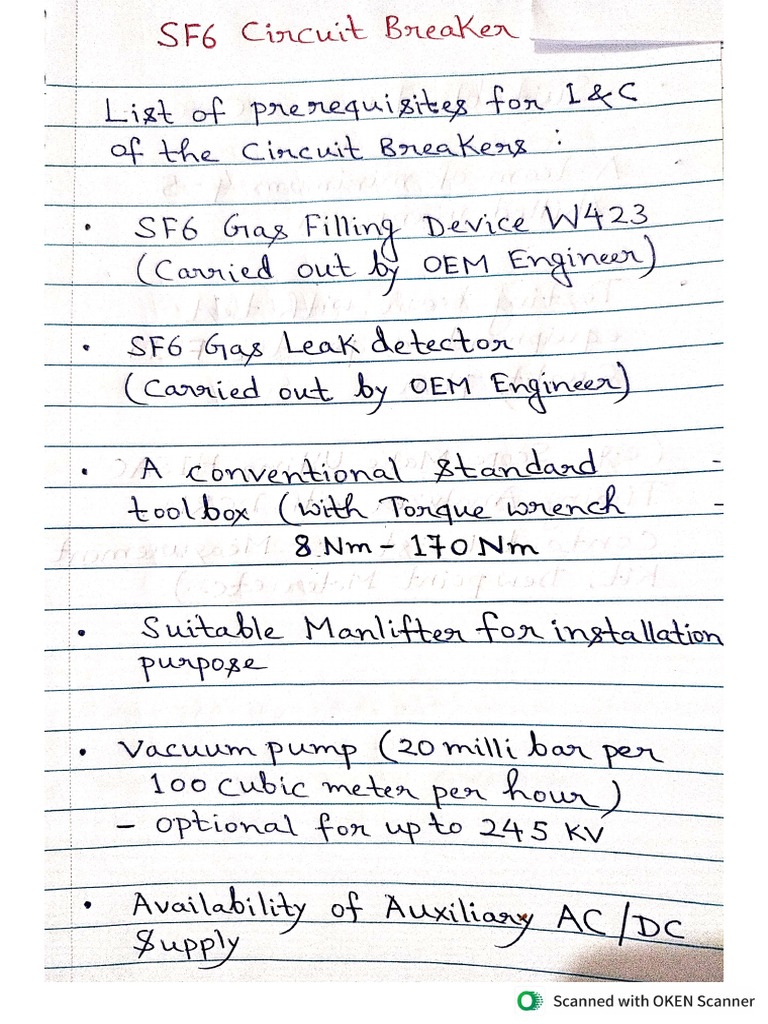 SF6 Circuit Breaker
List of prerequisites for I & C
of the Circuit Breakers :
• SF6 Gas Filling Device W423
(Carried out by OEM Engineer)
• SF6 Gas Leak detector
(Carried out by OEM Engineer)
• A conventional standard
toolbox (with Torque wrench
8 Nm - 170 Nm
• Suitable Manlifter for installation
purpose
• Vacuum pump (20 milli bar per
100 cubic meter per hour)
- optional for up to 245 KV
• Availability of Auxiliary AC/DC
Supply
Scanned with OKEN Scanner